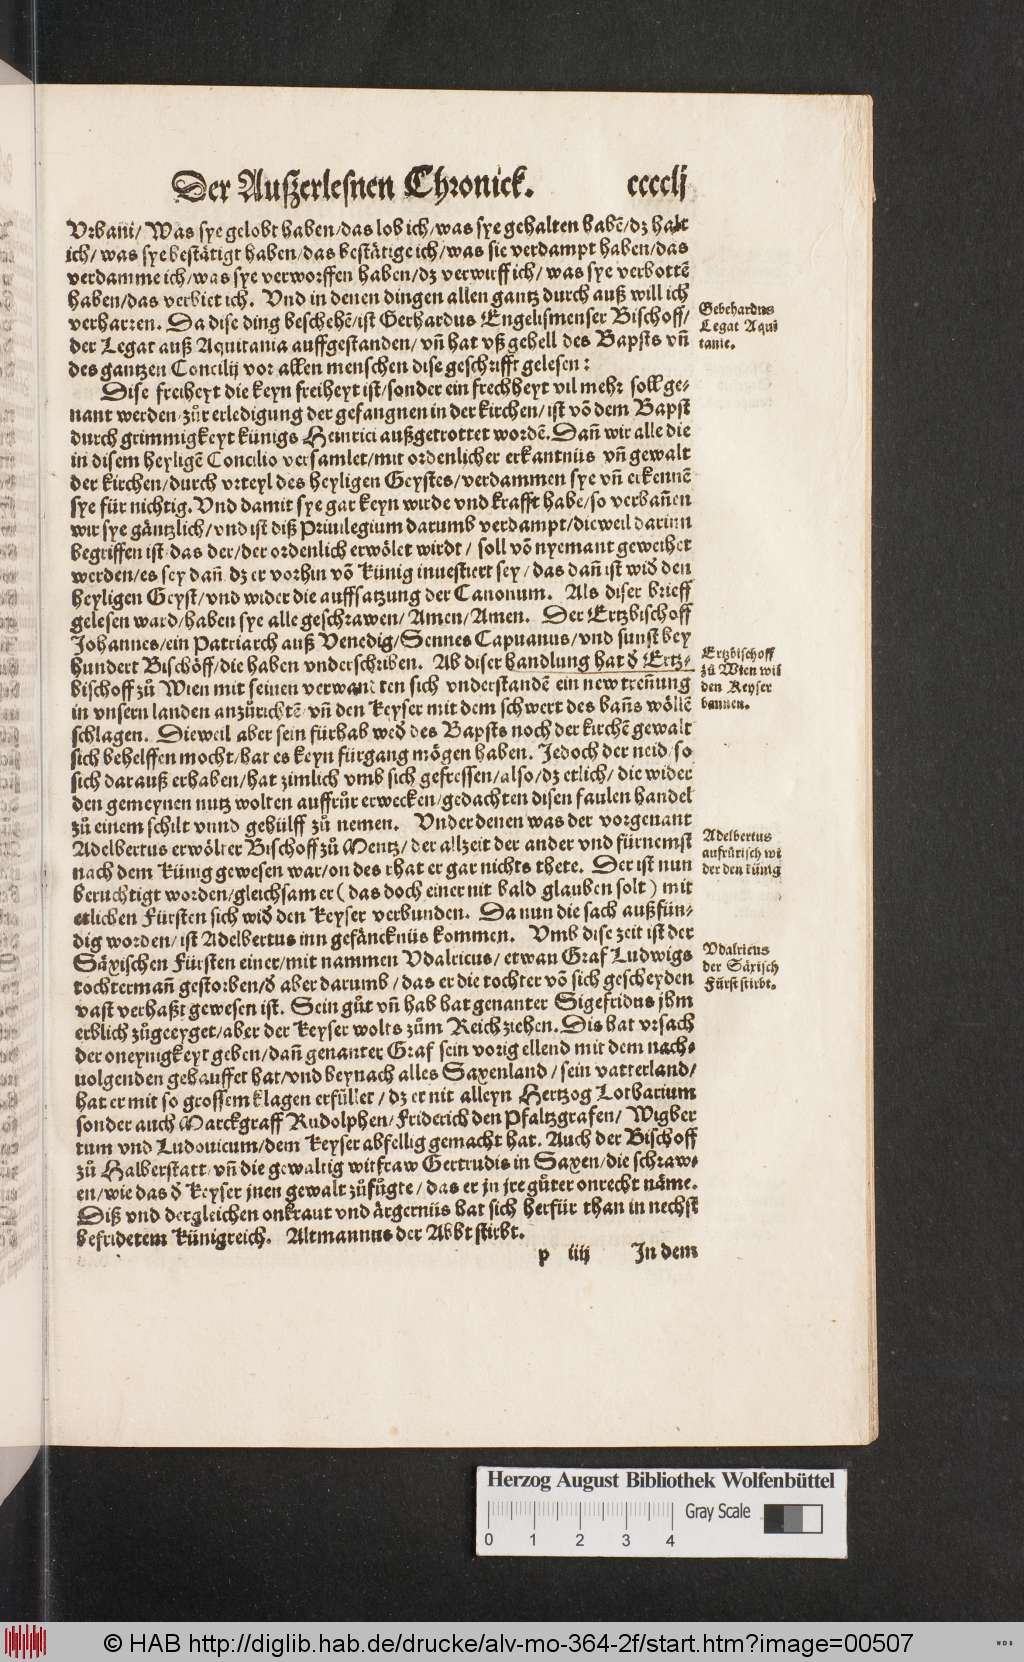 Der Außerlesnen Chronick. cccclj
Vrbani/ Was sye gelobt haben/das lob ich/was sye gehalten habē/dz halt
ich/ was sye bestätigt haben/das bestätige ich/was sie verdampt haben/das
verdamme ich/was sye verworffen haben/dz verwirff ich/ was sye verbottē
haben/das verbiet ich. Vnd in denen dingen allen gantz durch auß will ich
verharren. Da dise ding beschehē/ist Gerhardus Engelismenser Bischoff/
der Legat auß Aquitania auffgestanden/ vñ hat vß gehell des Bapsts vñ
des gantzen Concilij vor allen menschen dise geschrifft gelesen:
Gebehardus
Legat Aqui
tanie.
Dise freiheyt die keyn freiheyt ist/sonder ein frechheyt vil mehr soll ge-
nant werden/zůr erledigung der gefangnen in der kirchen/ ist vō dem Bapst
durch grimmigkeyt künigs Heinrici außgetrottet wordē. Dañ wir alle die
in disem heyligē Concilio versamlet/mit ordenlicher erkantnüs vñ gewalt
der kirchen/durch vrteyl des heyligen Geystes/verdammen sye vñ erkennē
sye für nichtig. Vnd damit sye gar keyn wirde vnd krafft habe/so verbañen
wir sye gäntzlich/vnd ist diß Priuilegium darumb verdampt/dieweil darinn
begriffen ist/das der/der ordenlich erwölet wirdt/ soll vō nyemant geweihet
werden/es sey dañ dz er vorhin vō Künig inuestiert sey/das dañ ist wid̄ den
heyligen Geyst/vnd wider die auffsatzung der Canonum. Als diser brieff
gelesen ward/haben sye alle geschrawen/ Amen/Amen. Der Ertzbischoff
Johannes/ein Patriarch auß Venedig/Sennes Capuanus/vnd sunst bey
hundert Bischöff/die haben vnderschriben. Ab diser handlung hat d̄ Ertz-
bischoff zů Wien mit seinen verwandten sich vnderstandē ein new treñung
in vnsern landen anzůrichtē/vñ den keyser mit dem schwert des bañs wöllē
schlagen. Dieweil aber sein fürhab wed̄ des Bapsts noch der kirchē gewalt
sich behelffen mocht/hat es keyn fürgang mögen haben. Jedoch der neid/so
sich darauß erhaben/hat zimlich vmb sich gefressen/also/dz etlich/ die wider
den gemeynen nutz wolten auffrůr erwecken/gedachten disen faulen handel
zů einem schilt vnnd gehülff zů nemen. Vnder denen was der vorgenant
Adelbertus erwölter Bischoff zů Mentz/ der allzeit der ander vnd fürnemst
nach dem Künig gewesen war/on des rhat er gar nichts thete. Der ist nun
beruchtigt worden/gleichsam er (das doch einer nit bald glauben solt) mit
etlichen Fürsten sich wid̄ den keyser verbunden. Da nun die sach außfün-
dig worden/ist Adelbertus inn gefäncknüs kommen. Vmb dise zeit ist der
Säxischen Fürsten einer/mit nammen Vdalricus/ etwan Graf Ludwigs
tochtermañ gestorben/d̄ aber darumb/das er die tochter vō sich gescheyden
vast verhaßt gewesen ist. Sein gůt vñ hab hat genanter Sigefridus jhm
erblich zůgeeyget/aber der keyser wolts zům Reich ziehen. Dis hat vrsach
der oneynigkeyt geben/dañ genanter Graf sein vorig ellend mit dem nach-
uolgenden gehauffet hat/vnd beynach alles Saxenland/sein vatterland/
hat er mit so grossem klagen erfüllet/ dz er nit alleyn Hertzog Lotharium
sonder auch Marckgraff Rudolphen/Friderich den Pfaltzgrafen/ Wigber
tum vnd Ludouicum/dem keyser abfellig gemacht hat. Auch der Bischoff
zů Halberstatt/vñ die gewaltig witfraw Gertrudis in Saxen/die schraw-
en/wie das d̄ keyser jnen gewalt zůfůgte/das er jn jre gůter onrecht näme.
Diß vnd dergleichen onkraut vnd ärgernüs hat sich herfür than in nechst
befridetem Künigreich. Altmannus der Abbt stirbt.
Ertzbischoff
zů Wien wil
den Keyser
bannen.
Adelbertus
aufrürisch wi
der den künig
Vdalricus
der Säxisch
Fürst stirbt.
p iiij In dem
Herzog August Bibliothek Wolfenbüttel
Gray Scale
0 1 2 3 4
© HAB http://diglib.hab.de/drucke/alv-mo-364-2f/start.htm?image=00507